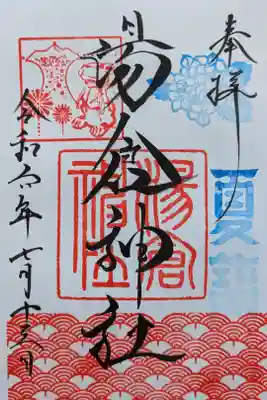 奉拝
湯倉神社
湯倉神社
夏詣
令和六年七月十六日